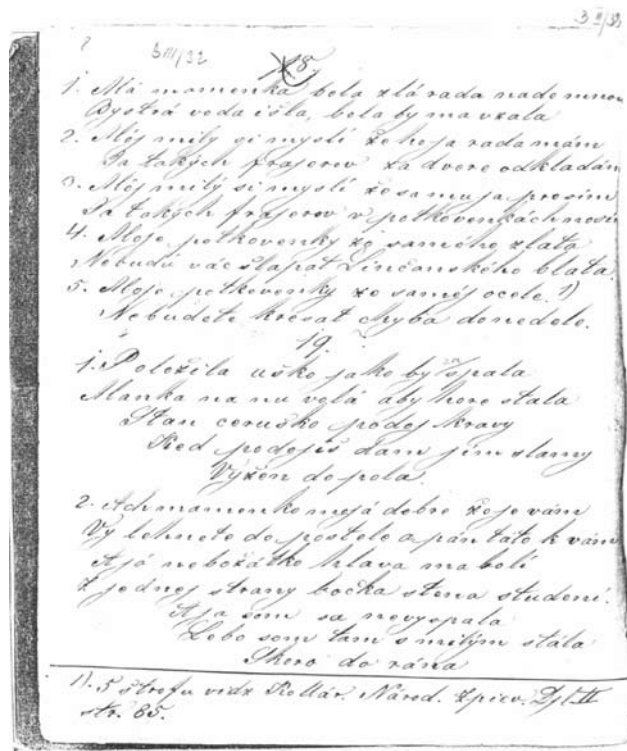 3 II/33
?
3 III/32
18.
1. Má mamenka bola zlá rada nademnou
Bystrá voda išla, bola by ma vzala
2. Mój milý si myslí že ho ja rada mám
Ja takých frajerov za dvere odkladám
3. Mój milý si myslí že sa mu ja prosím
Ja takých frajerov v potkovenkách nosím
4. Moje potkovenky ze samého zlata
Nebudú vác šlapat Linčanského blata.
5. Moje potkovenky ze samej ocele. 1)
Nebudete kresat chyba do nedele.
19.
1. Položila uško jako by spala
Manka na nu volá aby hore stala
Stan ceruško podoj kravy
Ked podojíš dam jim slamy
Vyžen do pola.
2. Ach mamenko mojá dobre že je vám
Vy lehnete do postele a pán táto k vám
A já nebožátko hlava ma bolí
Z jednej strany bočka stena studení.
A ja som sa nevyspala
Lebo som tam s milým stála
Skoro do rána
1). 5 štrofu vidz Kollár. Národ. Zpiev. Djl II
str. 85.